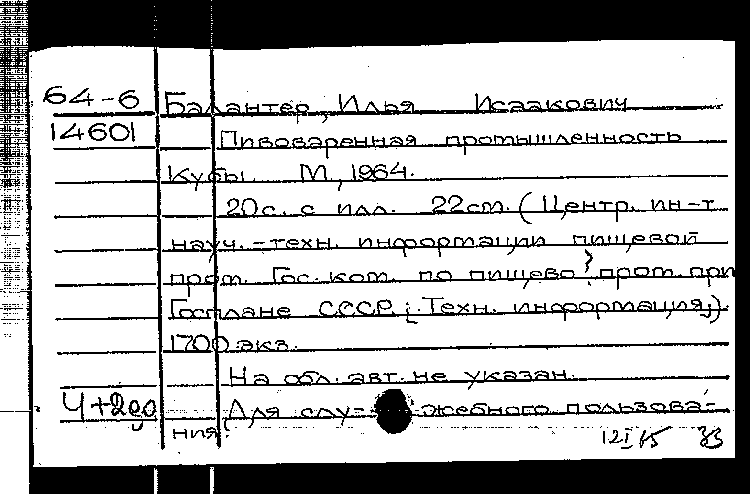 64-6 Балантер, Илья Исаакович
14601 Пивоваренная промышленность
Кубы. М., 1964.
20 с. с илл. 22 см. (Центр. ин-т
науч.-техн. информации пищевой
пром. Гос. ком. по пищево? пром. при
Госплане СССР [. Техн. информация,])
1700 экз.
На обл. авт. не указан.
Для слу- жебного пользова-
ния.